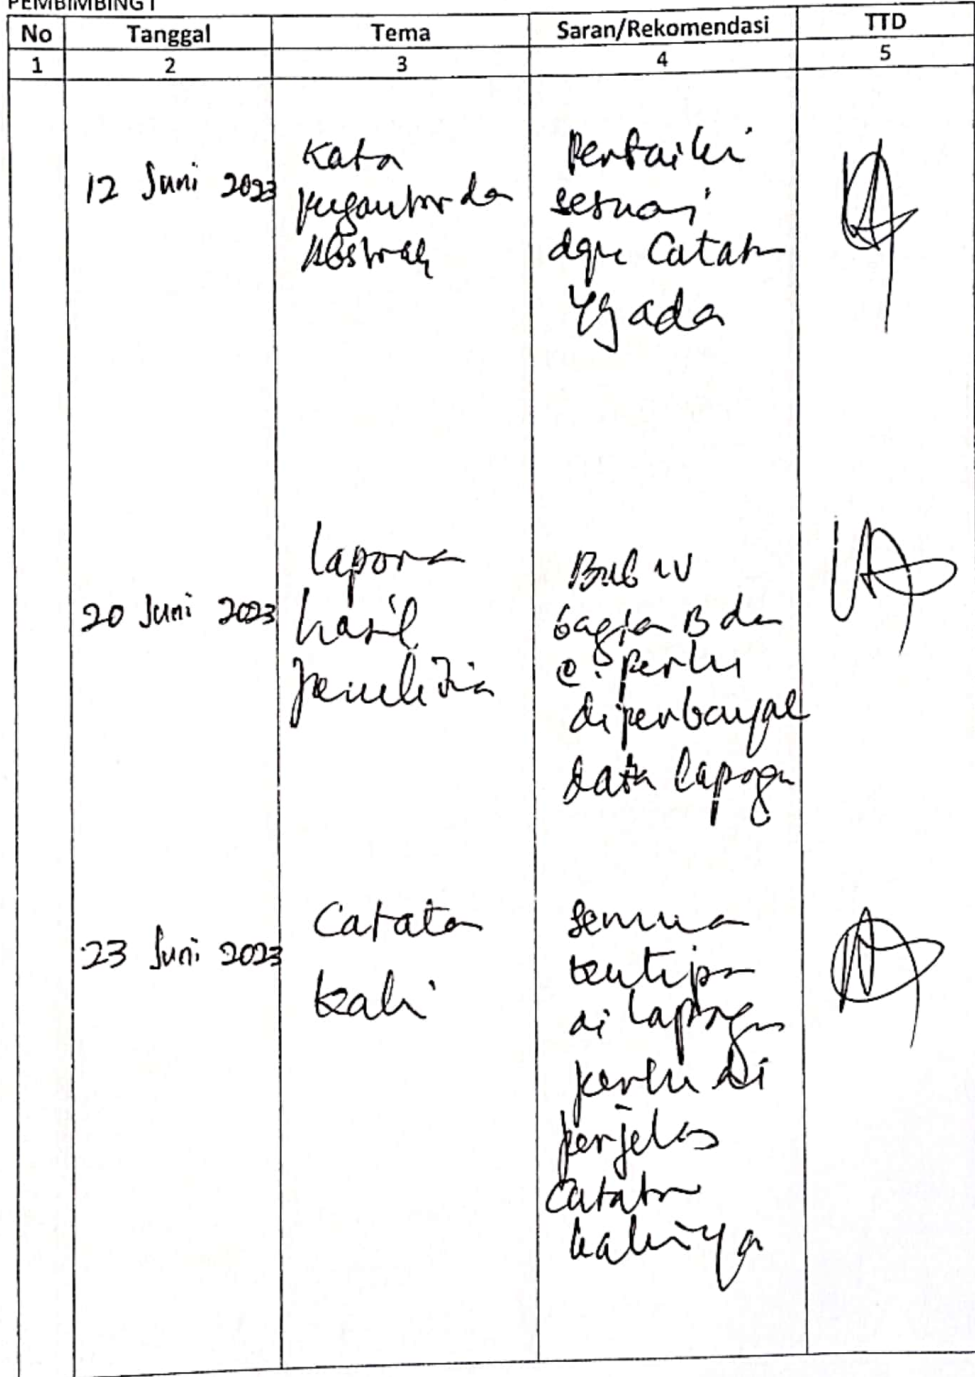 PEMBIMBING I
No Tanggal Tema Saran/Rekomendasi TTD
1 2 3 4 5
12 Juni 2023
Kata
pengantar dan
Abstrak
Perbaiki
sesuai
dgn Catatan
yg ada
20 Juni 2023
laporan
hasil
penelitian
Bab IV
bagian B dan
C. perlu
diperbanyak
data lapangan
23 Juni 2023
Catatan
kaki
semua
kutipan
di lapangan
perlu di
perjelas
catatan
kakinya